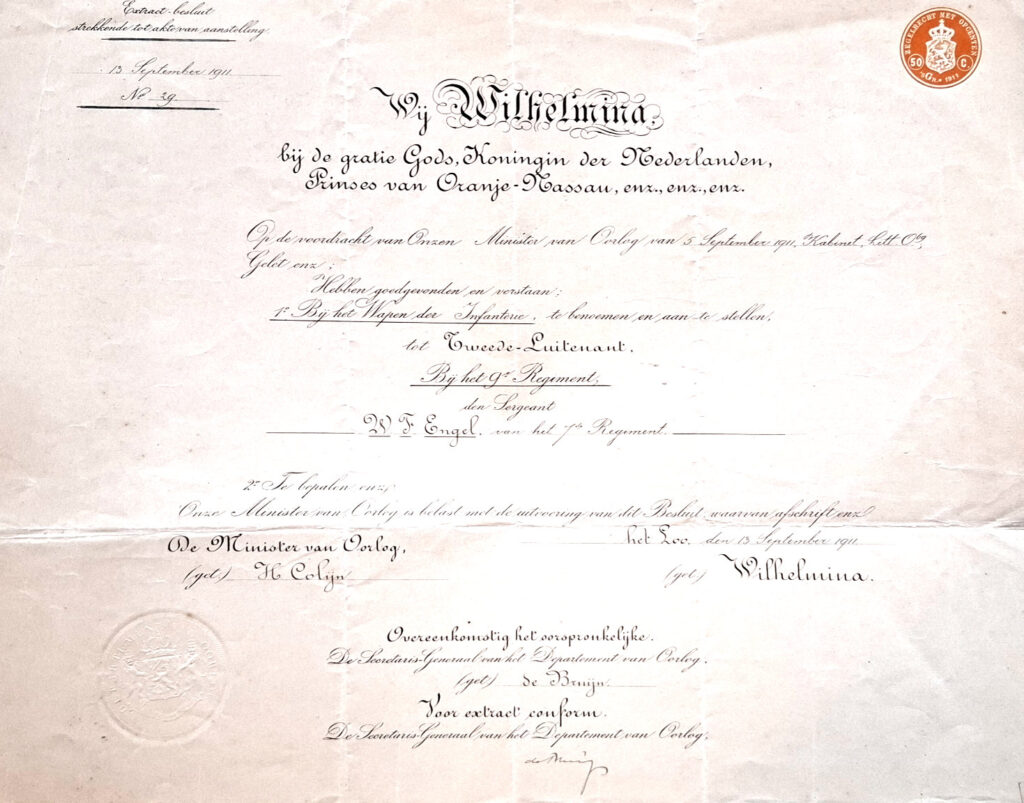 Extract-besluit
strekkende tot akte van aanstelling
13 September 1911
No 29
ZEGELRECHT MET OPCENTEN
50 C.
'sGr. 1911
Wij Wilhelmina,
bij de gratie Gods, Koningin der Nederlanden,
Prinses van Oranje-Nassau, enz., enz., enz.
Op de voordracht van Onzen Minister van Oorlog van 5 September 1911, Kabinet, Litt.
Gelet enz;
Hebben goedgevonden en verstaan:
1e Bij het Wapen der Infanterie, te benoemen en aan te stellen,
tot Tweede-Luitenant,
Bij het 9e Regiment,
den Sergeant
W F Engel, van het 7de Regiment.
2e Te bepalen enz;
Onze Minister van Oorlog is belast met de uitvoering van dit Besluit, waarvan afschrift enz
het Loo, den 13 September 1911
De Minister van Oorlog,
(get.) H Colijn
(get.) Wilhelmina.
Overeenkomstig het oorspronkelijke.
De Secretaris-Generaal van het Departement van Oorlog,
(get.) de Bruijn
Voor extract conform.
De Secretaris-Generaal van het Departement van Oorlog,